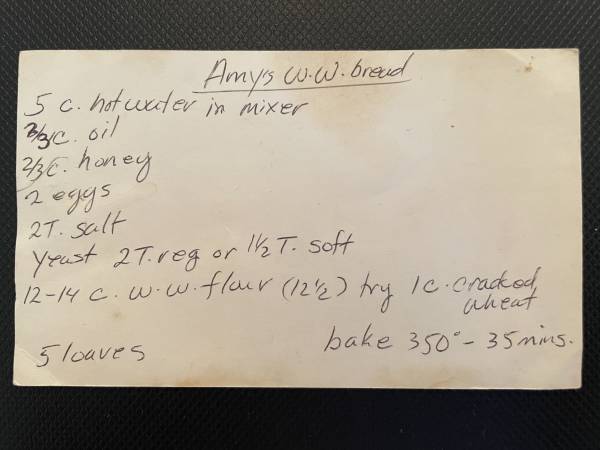 Amy's W.W. bread
5 c. hot water in mixer
2/3 c. oil
2/3 c. honey
2 eggs
2 T. salt
Yeast 2 T. reg or 1 1/2 T. soft
12-14 c. w.w. flour (12 1/2) try 1 c. cracked
wheat
5 loaves
bake 350° - 35 mins.